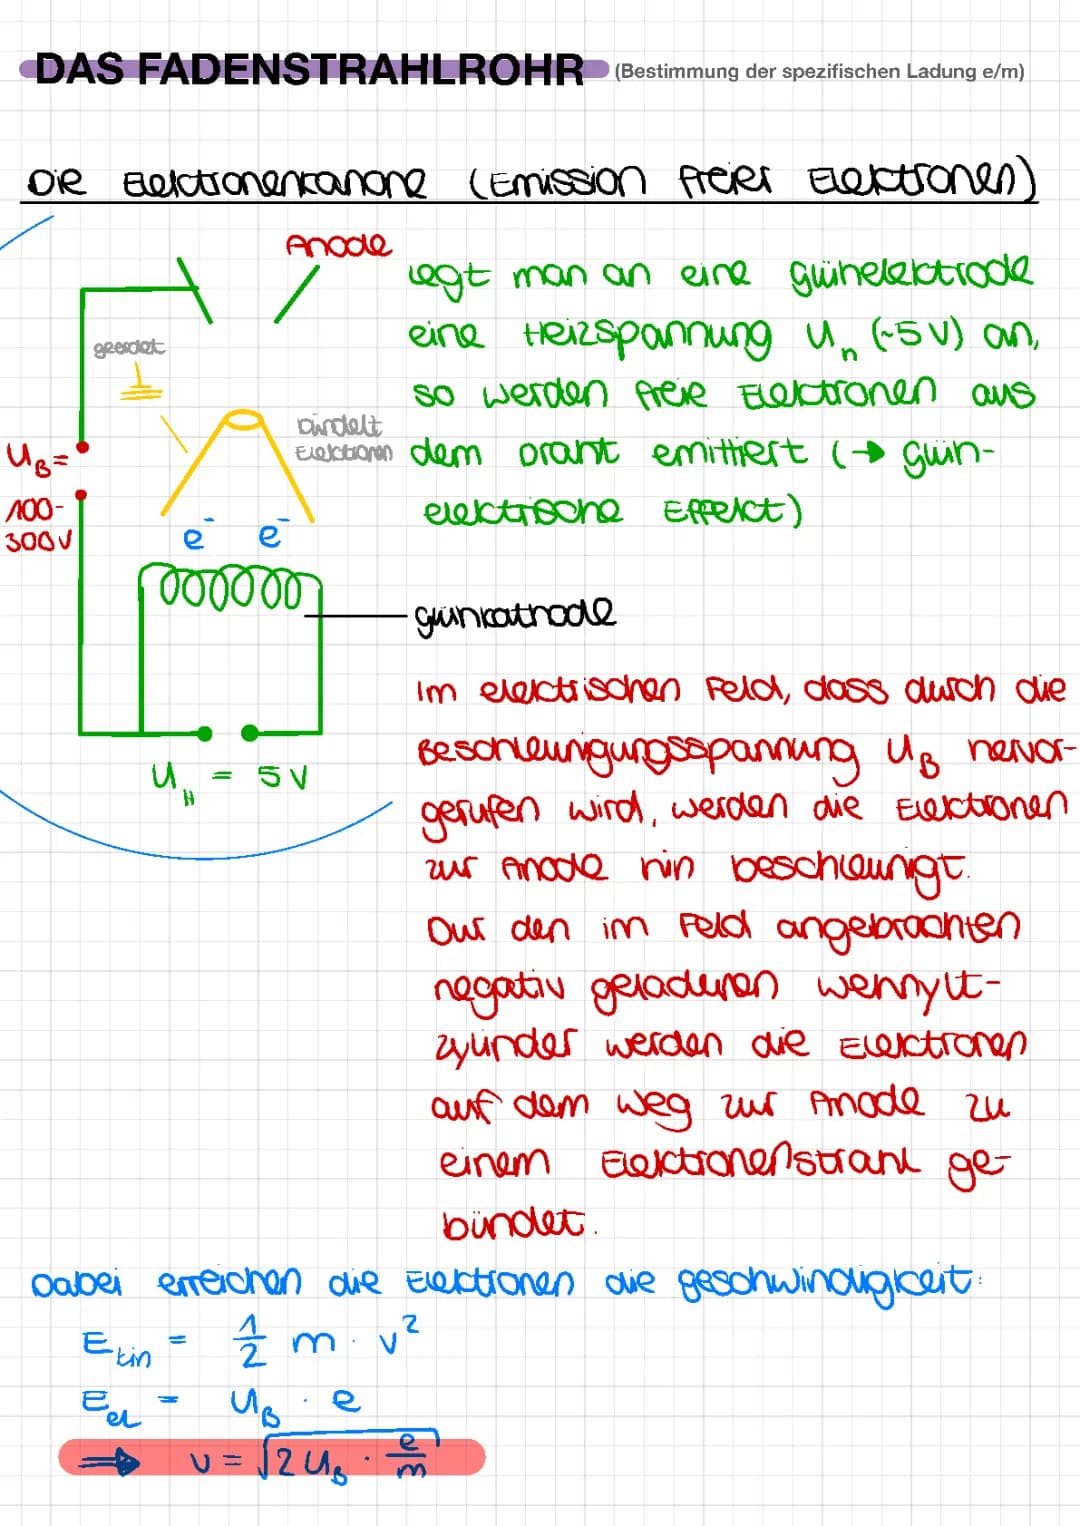 DAS FADENSTRAHLROHR (Bestimmung der spezifischen Ladung e/m)
Die Elektronenkanone (Emission freier Elektronen)
Anode
geerdet
bündelt
Elektronen
U_B =
100-
300V
e⁻ e⁻
U_H = 5V
Legt man an eine Glühelektrode
eine Heizspannung U_h (~5V) an,
so werden freie Elektronen aus
dem Draht emittiert (→ glüh-
elektrische Effekt)
Glühkathode
Im elektrischen Feld, dass durch die
Beschleunigungsspannung U_B hervor-
gerufen wird, werden die Elektronen
zur Anode hin beschleunigt.
Dur den im Feld angebrachten
negativ geladenen Wehnylt-
zylinder werden die Elektronen
auf dem Weg zur Anode zu
einem Elektronenstrahl ge-
bündet.
Dabei erreichen die Elektronen die Geschwindigkeit:
E_kin = 1/2 m · v²
E_el = U_B · e
⇒ v = √(2U_B · e/m)